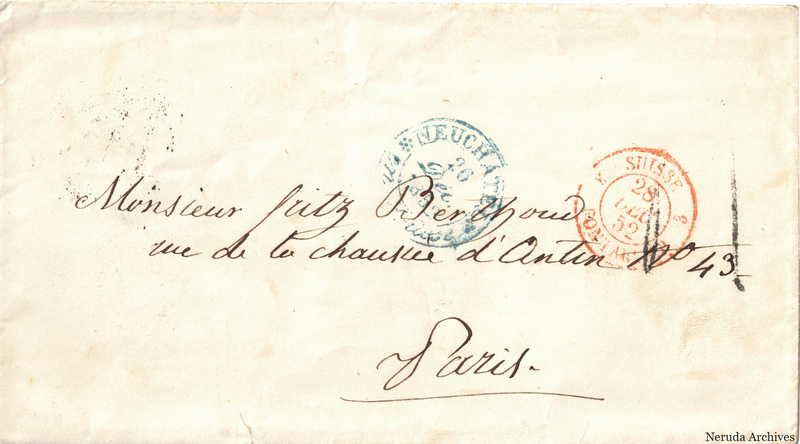 NEUCHÂTEL
26
Dec
SUISSE
28
52
Monsieur fritz Berthoud
rue de la chaussée d'Antin No 43
Paris.
Neruda Archives